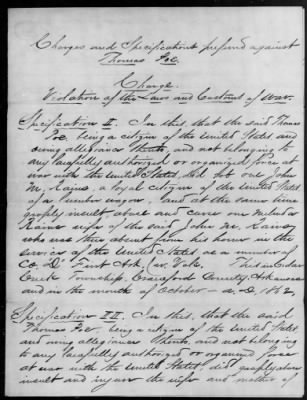 Charges and Specifications prefered against
Thomas
Charge.
Violation of the Laws and Customs of War.
Specification I. In this, that the said Thomas
being a citizen of the United States and
owing allegiance thereto, and not belonging to
any lawfully authorized or organized force at
war with the United States, did rob one John
M. Rains, a loyal citizen of the United States
of a wagon, and at the same time
grossly insult abuse and curse one
Rains wife of the said John M. Rains
who was then absent from his home in the
service of the United States as a member of
Co. "D" First Ark Cav. Vols. This in Cedar
Creek Township, Crawford County, Arkansas
and in the month of October A.D. 1862.
Specification II. In this, that the said
Thomas being a citizen of the United States
and owing allegiance thereto, and not belonging
to any lawfully authorized or organized force
at war with the United States, did grossly abuse
insult and injure the wife and mother of